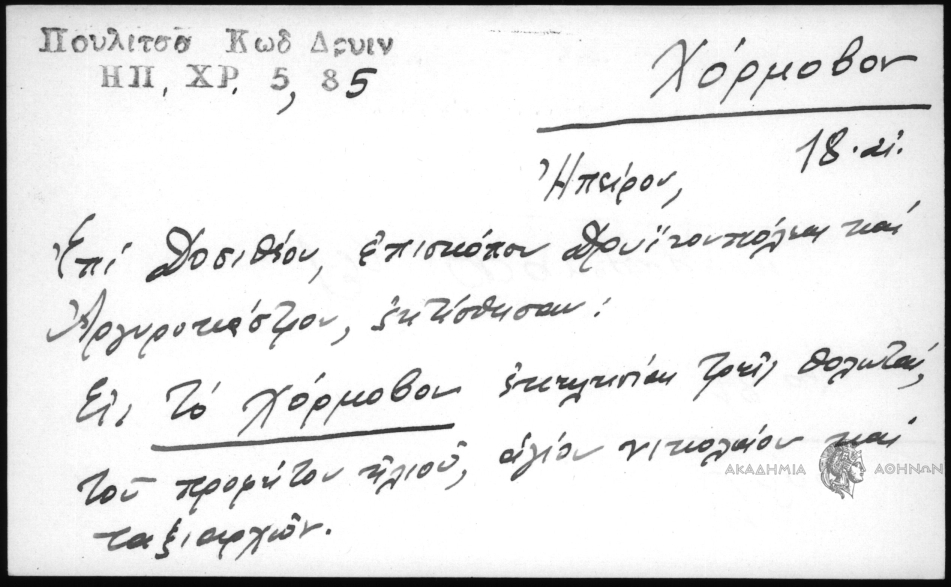 Πουλιτσᾶ Κωδ Δρυιν
ΗΠ. ΧΡ. 5, 85
Χόρμοβον
Ἠπείρου, 18. αἰ.
Ἐπί Δοσιθέου, ἐπισκόπου Δρυϊνουπόλεως καί
Ἀργυροκάστρου, ἐκτίσθησαν:
Εἰς τό Χόρμοβον ἐκκλησίαι τρεῖς θολωταί,
τοῦ προφήτου ἠλιοῦ, ἁγίου νικολαίου καί
ταξιαρχῶν.
ΑΚΑΔΗΜΙΑ ΑΘΗΝΩΝ